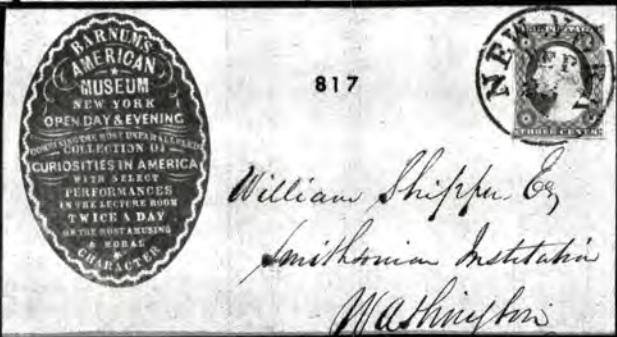 BARNUM'S
AMERICAN
MUSEUM
NEW YORK
OPEN DAY & EVENING
COMPRISING THE MOST UNPARALLELED
COLLECTION OF
CURIOSITIES IN AMERICA
WITH SELECT
PERFORMANCES
IN THE LECTURE ROOM
TWICE A DAY
OF THE MOST AMUSING
& MORAL
CHARACTER
817
NEW YORK
THREE CENTS
William Esq
Smithsonian Institution
Washington